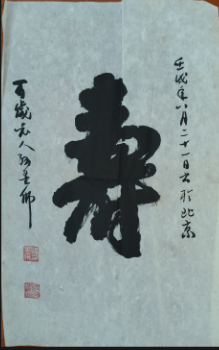 壬戌年八月二十一日书於北京
壽
百歲老人孫墨佛